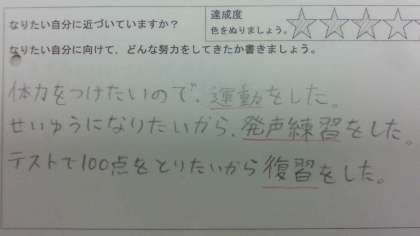 なりたい自分に近づいていますか？
達成度
色をぬりましょう。
なりたい自分に向けて、どんな努力をしてきたか書きましょう。
体力をつけたいので、運動をした。
せいゆうになりたいから、発声練習をした。
テストで100点をとりたいから復習をした。